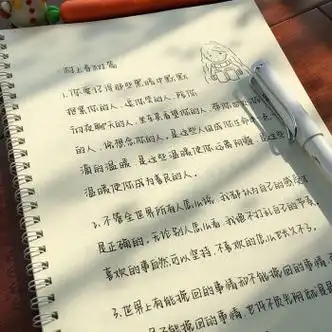 村上春树篇
1.你要记得那些黑暗中默默
抱紧你的人,逗你笑的人,陪你
彻夜聊天的人,坐车来看望你的人,陪你
的人,说想念你的人,是这些人组成你生命中一点
滴的温暖,是这些温暖使你远离阴霾,是这些
温暖使你成为善良的人.
2.不管全世界所有人怎么说,我都认为自己的感受才
是正确的,无论别人怎么看,我绝不打乱自己的节奏,
喜欢的事自然可以坚持,不喜欢的怎么也长久不了.
3.世界上有能挽回的事情和不能挽回的事情,
不能挽回的事情